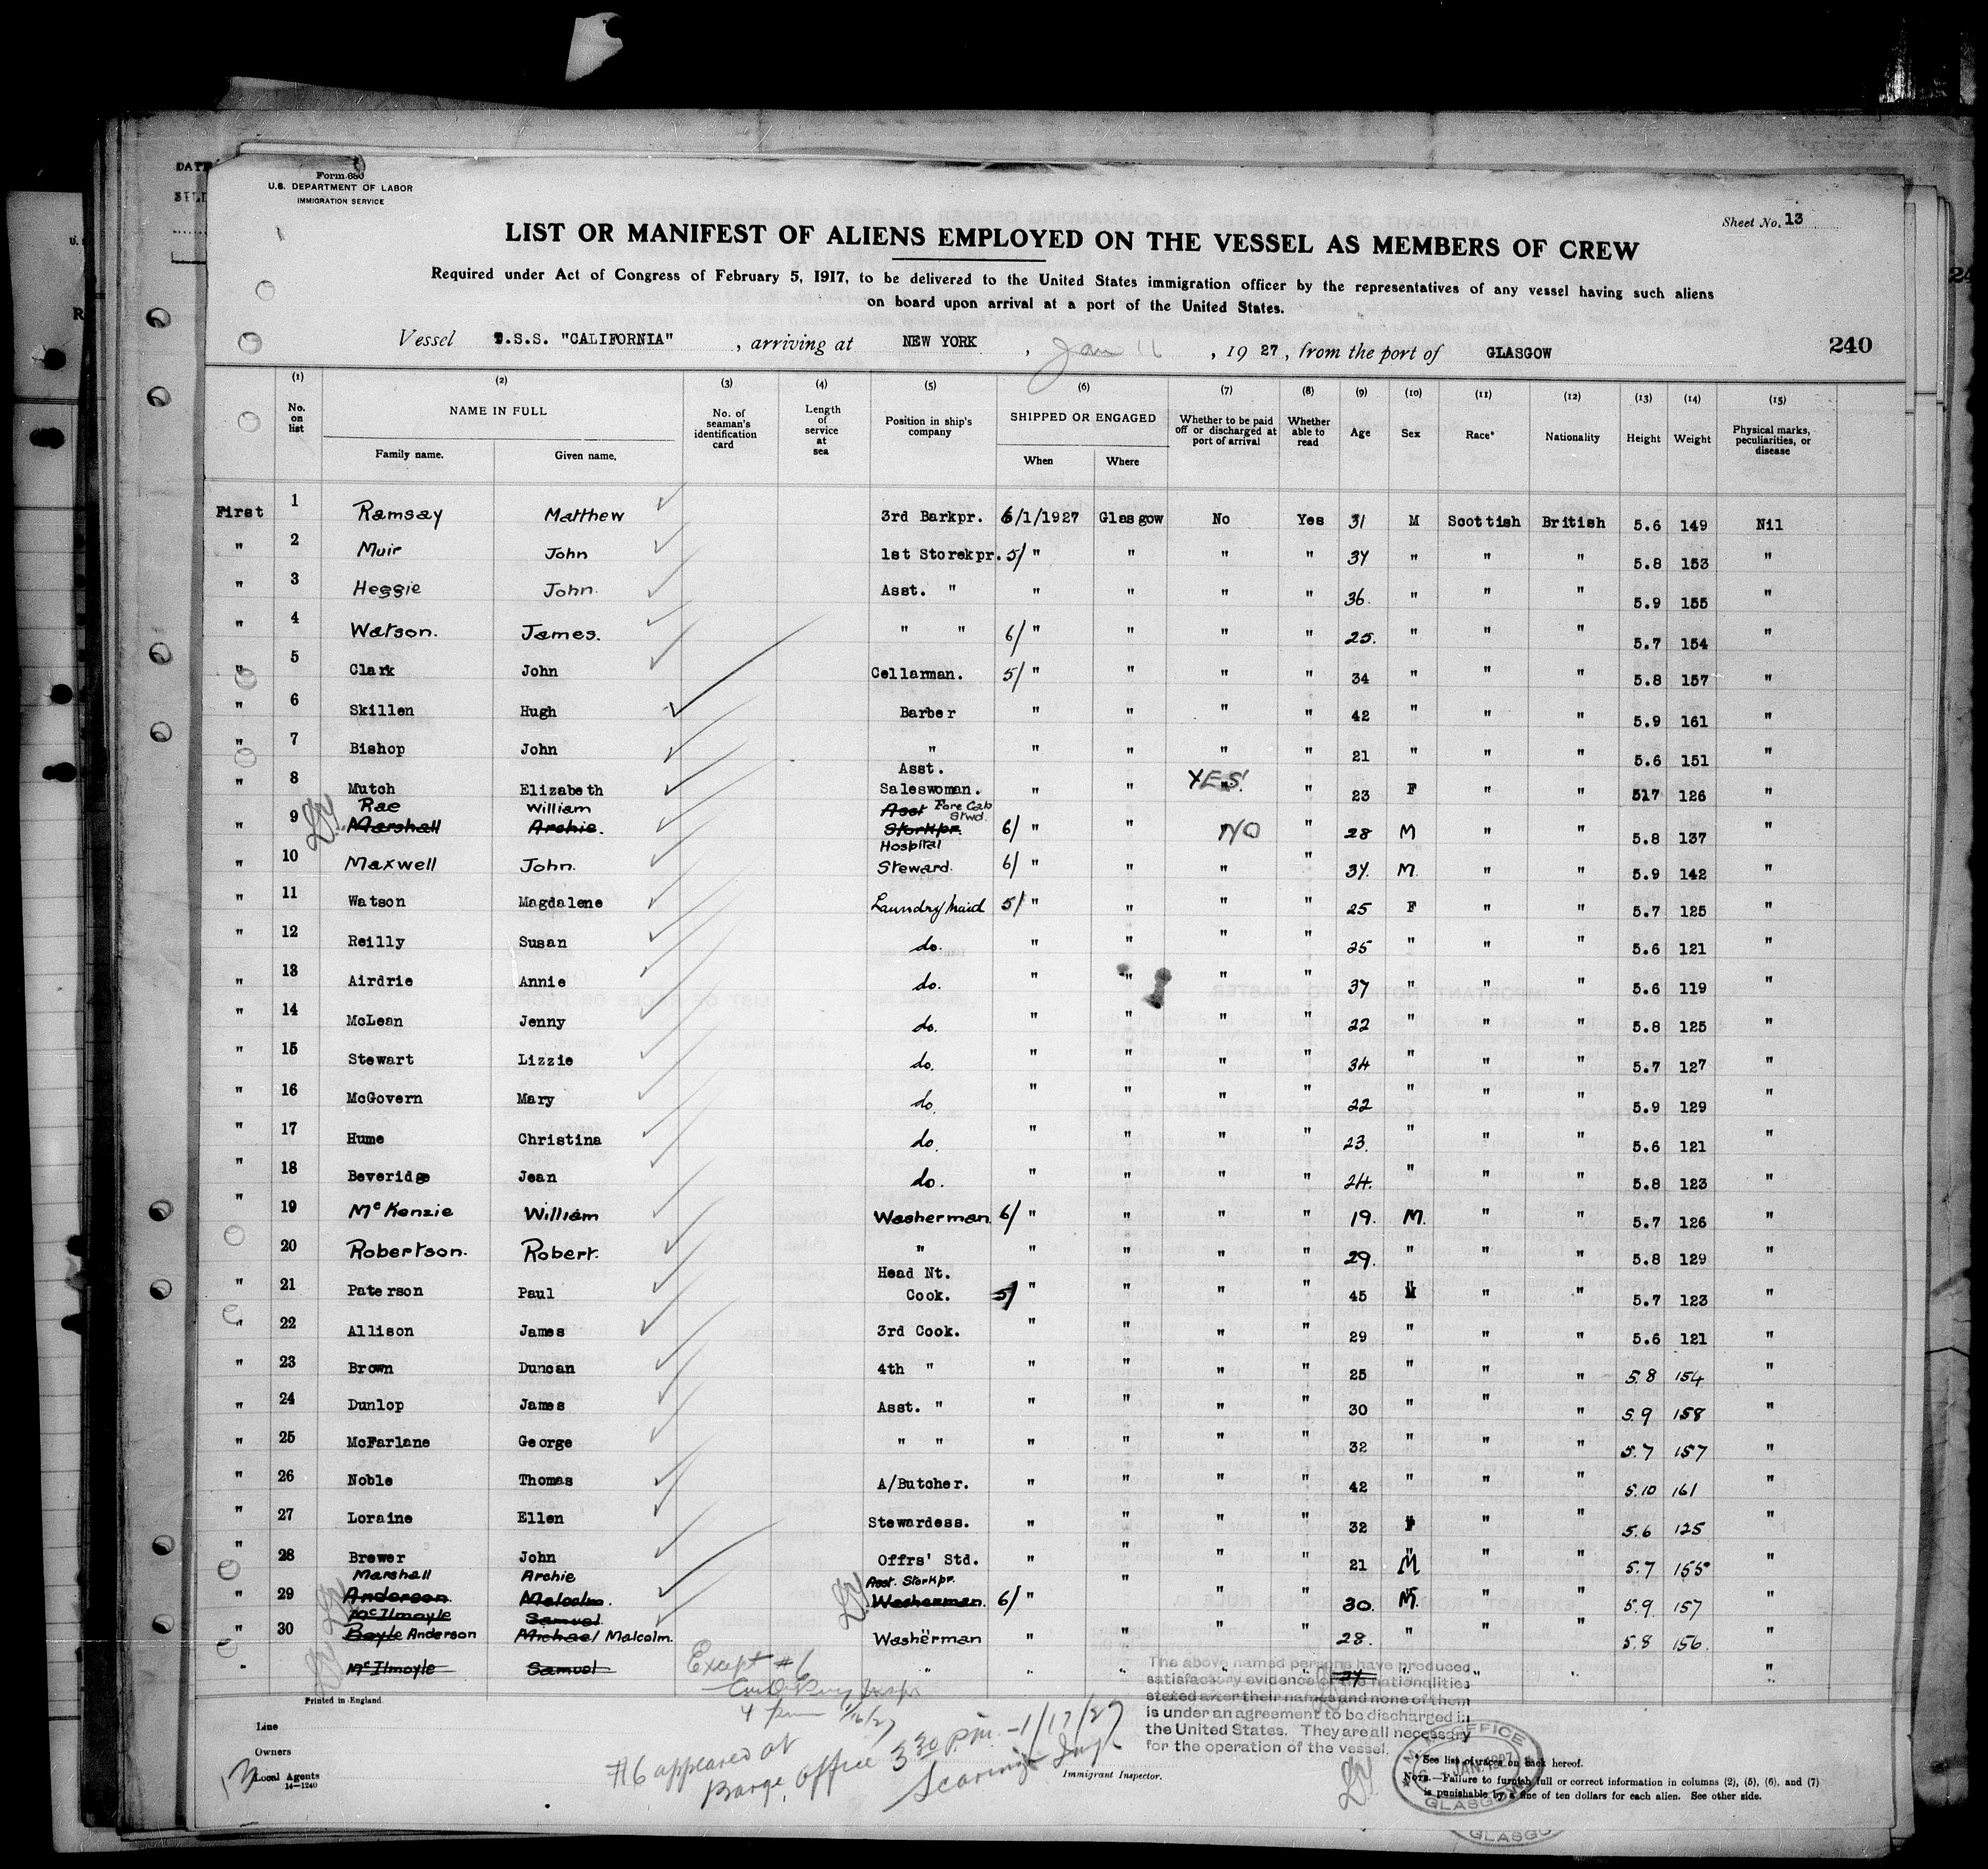 Form 680
U.S. DEPARTMENT OF LABOR
IMMIGRATION SERVICE
Sheet No. 13
LIST OR MANIFEST OF ALIENS EMPLOYED ON THE VESSEL AS MEMBERS OF CREW
Required under Act of Congress of February 5, 1917, to be delivered to the United States immigration officer by the representatives of any vessel having such aliens
on board upon arrival at a port of the United States.
Vessel T.S.S. "CALIFORNIA" , arriving at NEW YORK , Jan 16 , 1927, from the port of GLASGOW
240
(1) (2) (3) (4) (5) (6) (7) (8) (9) (10) (11) (12) (13) (14) (15)
No. on list NAME IN FULL Family name. Given name. No. of seaman's identification card Length of service at sea Position in ship's company SHIPPED OR ENGAGED When Where Whether to be paid off or discharged at port of arrival Whether able to read Age Sex Race* Nationality Height Weight Physical marks, peculiarities, or disease
First 1 Ramsay Matthew 3rd Barkpr. 6/1/1927 Glasgow No Yes 31 M Scottish British 5.6 149 Nil
" 2 Muir John 1st Storekpr. 5/ " " " " 34 " " " 5.8 153 "
" 3 Heggie John. Asst. " " " " " 36. " " " 5.9 155 "
" 4 Watson. James. " " 6/ " " " " 25. " " " 5.7 154 "
" 5 Clark John Cellarman. 5/ " " " " 34 " " " 5.8 157 "
" 6 Skillen Hugh Barber " " " " 42 " " " 5.9 161 "
" 7 Bishop John " " " " " 21 " " " 5.6 151 "
" 8 Mutch Elizabeth Asst. Saleswoman. " " YES " 23 F " " 517 126 "
Rae William Fore Cab Stwd.
" 9 Marshall Archie. Asst Storkpr. 6/ " " NO " 28 M " " 5.8 137 "
" 10 Maxwell John. Hospital Steward. 6/ " " " " 34. M. " " 5.9 142 "
" 11 Watson Magdalene Laundry Maid 5/ " " " " 25 F " " 5.7 125 "
" 12 Reilly Susan do. " " " " 25 " " " 5.6 121 "
" 13 Airdrie Annie do. " " " " 37 " " " 5.6 119 "
" 14 McLean Jenny do. " " " " 22 " " " 5.8 125 "
" 15 Stewart Lizzie do. " " " " 34 " " " 5.7 127 "
" 16 McGovern Mary do. " " " " 22 " " " 5.9 129 "
" 17 Hume Christina do. " " " " 23. " " " 5.6 121 "
" 18 Beveridge Jean do. " " " " 24. " " " 5.8 123 "
" 19 McKenzie William Washerman. 6/ " " " " 19. M. " " 5.7 126 "
" 20 Robertson. Robert. " " " " " 29. " " " 5.8 129 "
" 21 Paterson Paul Head Nt. Cook. 5/ " " " " 45 M " " 5.7 123 "
" 22 Allison James 3rd Cook. " " " " 29 " " " 5.6 121 "
" 23 Brown Duncan 4th " " " " " 25 " " " 5.8 154 "
" 24 Dunlop James Asst. " " " " " 30 " " " 5.9 158 "
" 25 McFarlane George " " " " " " 32 " " " 5.7 157 "
" 26 Noble Thomas A/Butcher. " " " " 42 " " " 5.10 161 "
" 27 Loraine Ellen Stewardess. " " " " 32 F " " 5.6 125 "
" 28 Brewer John Offrs' Std. " " " " 21 M " " 5.7 155 "
Marshall Archie Asst. Storkpr.
" 29 Anderson Malcolm. Washerman. 6/ " " " " 30. M. " " 5.9. 157 "
McIlmoyle Samuel
" 30 Boyle Anderson Michael Malcolm. Washerman " " " " 28. " " " 5.8 156. "
McIlmoyle Samuel " " " " " 24 " " " "
Except #6
4 pm 1/16/27
#6 appeared at
Barge Office 3 30 P.M. -1/17/27
Insp.
The above named persons have produced
satisfactory evidence of the nationalities
stated after their names and none of them
is under an agreement to be discharged in
the United States. They are all necessary
for the operation of the vessel.
Printed in England.
Line
Owners
Local Agents
14—1240
Immigrant Inspector.
* See list of races on back hereof.
NOTE.—Failure to furnish full or correct information in columns (2), (5), (6), and (7)
is punishable by a fine of ten dollars for each alien. See other side.
OFFICE
JAN. 1927
GLASGOW